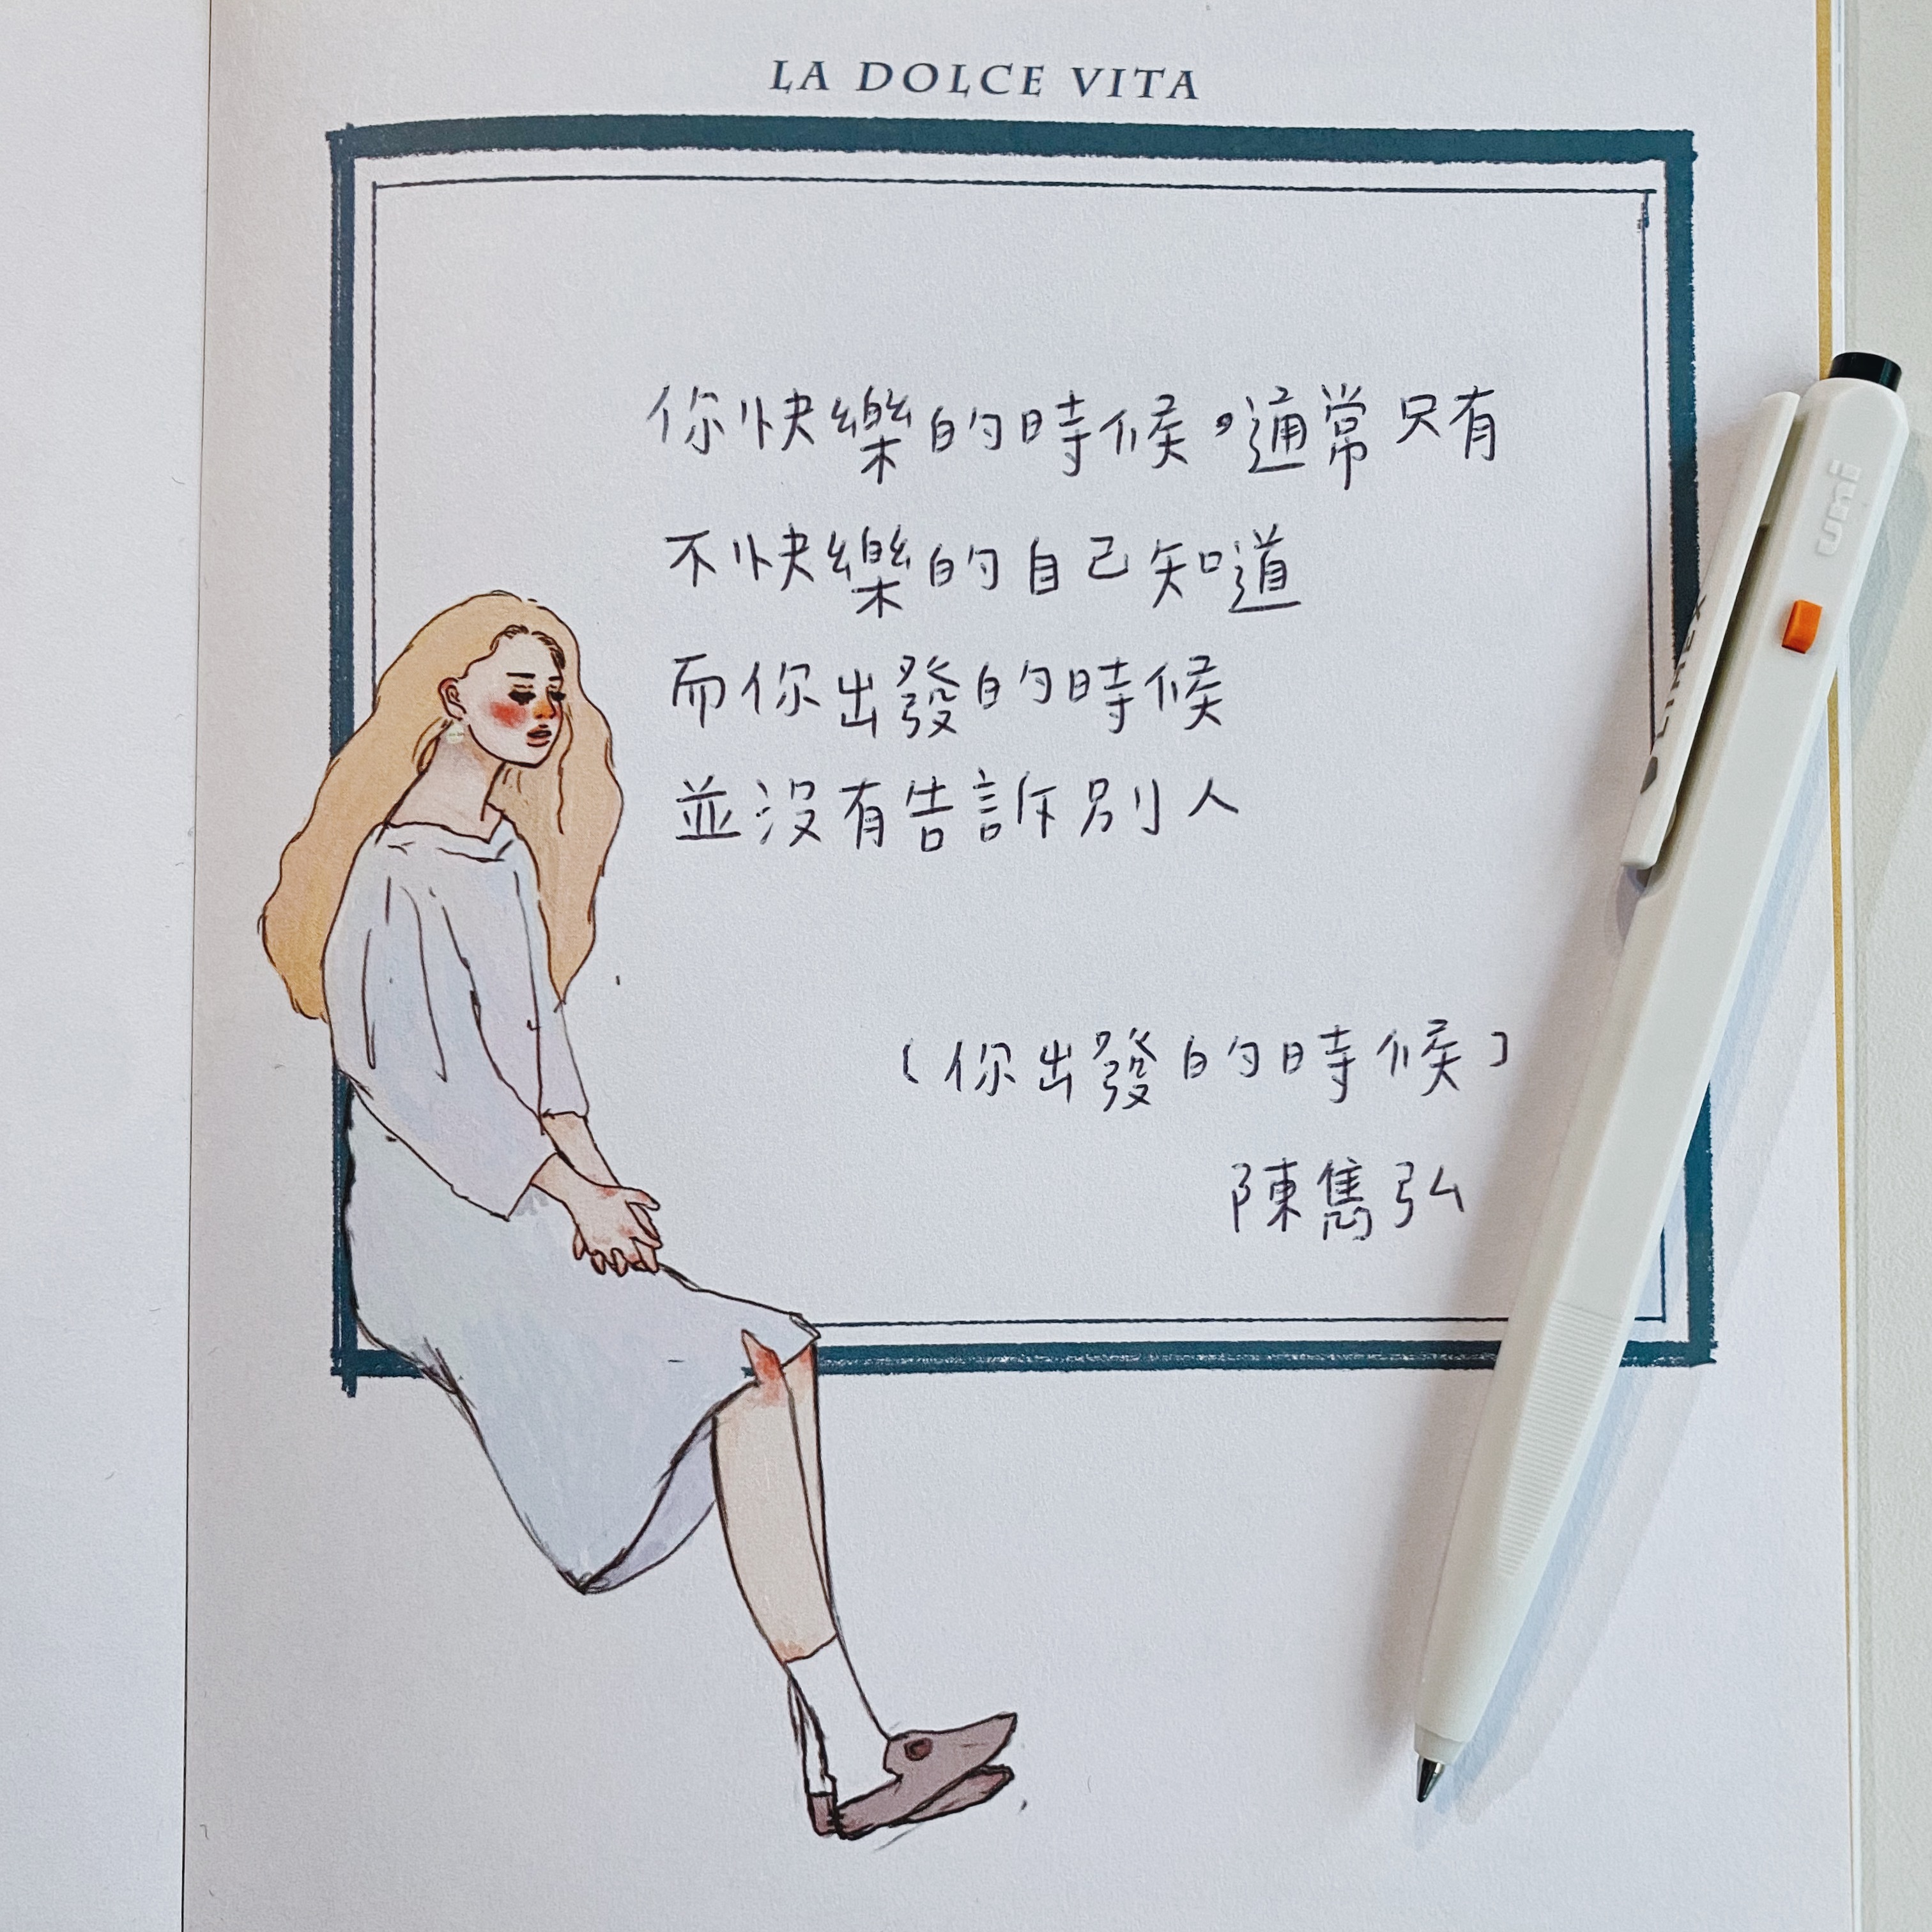 LA DOLCE VITA
你快樂的時候，通常只有
不快樂的自己知道
而你出發的時候
並沒有告訴別人
〔你出發的時候〕
陳雋弘
uni